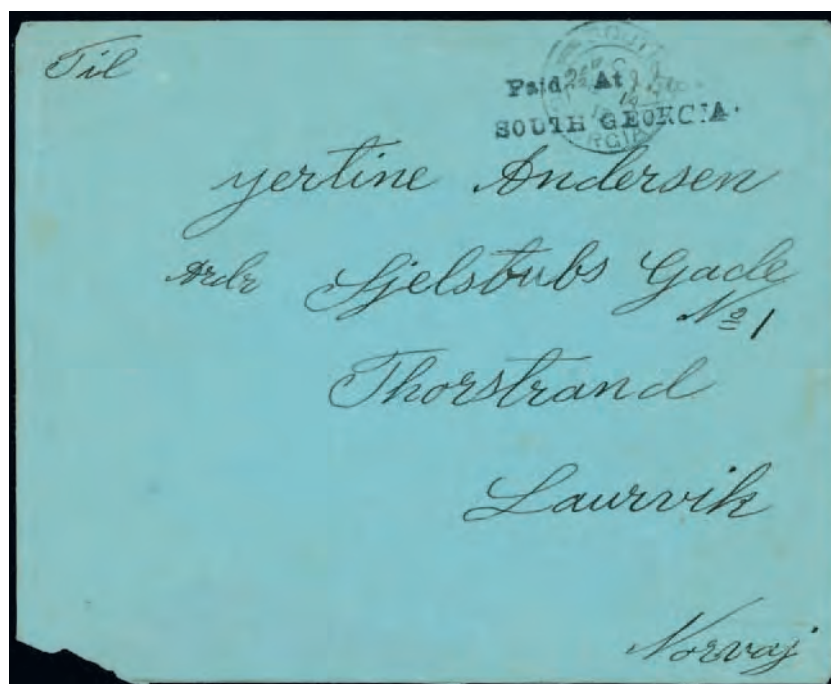 Til
Paid 2½ At
SOUTH GEORGIA.
yertine Andersen
Adr Sjelstubs Gade
No 1
Thorstrand
Laurvik
Norvaj